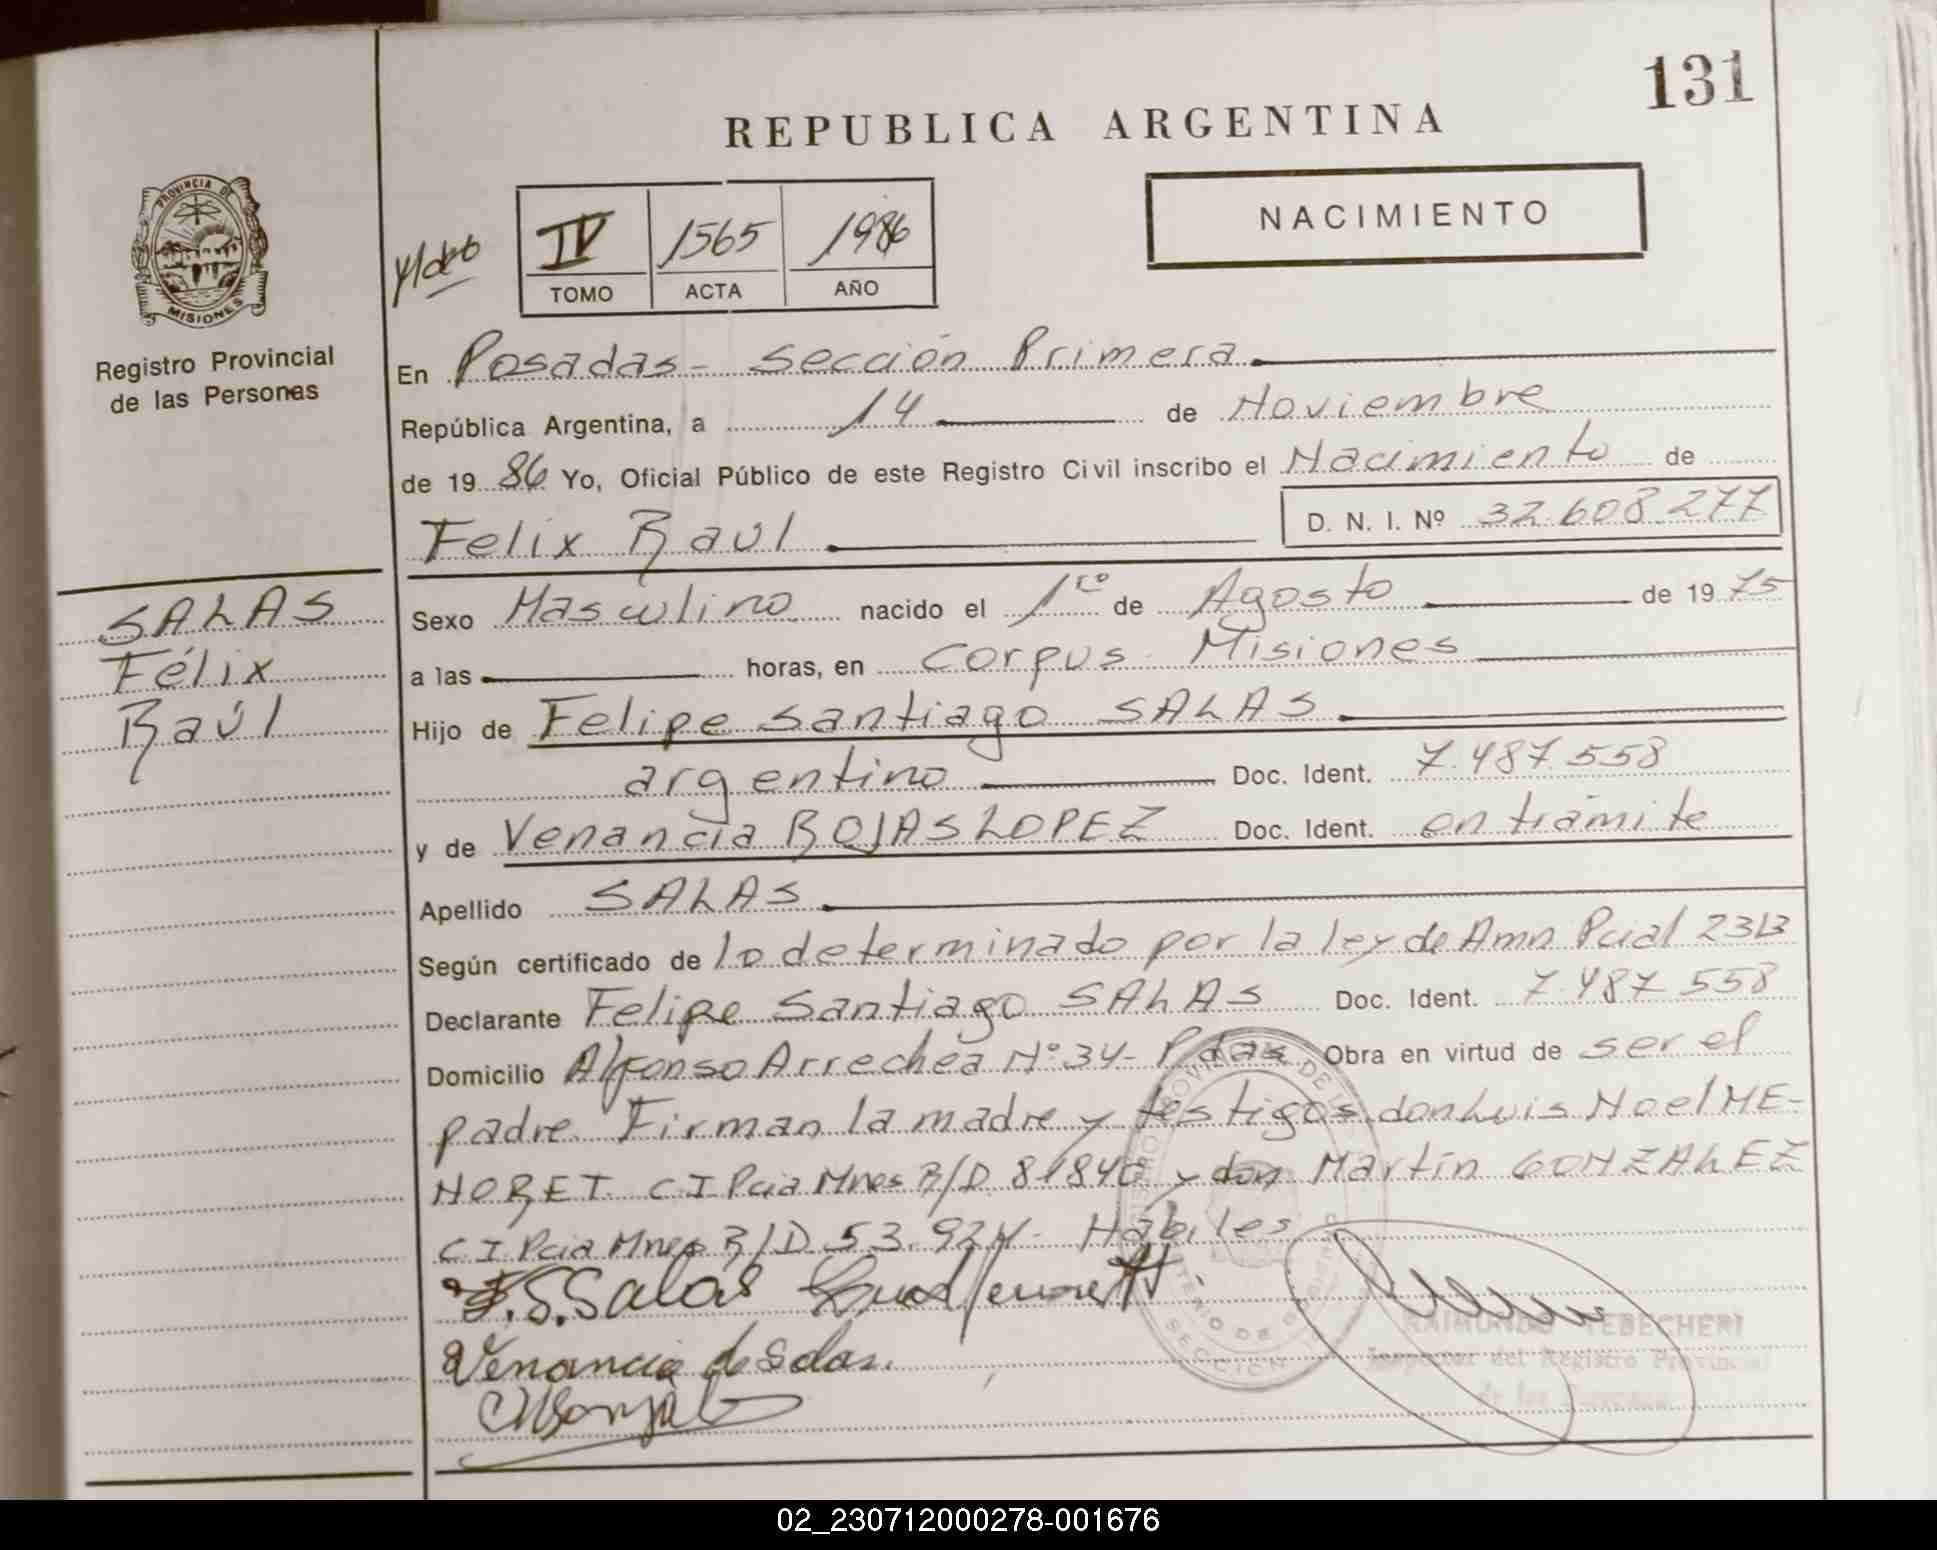 131
REPUBLICA ARGENTINA
NACIMIENTO
IV 1565 1986
TOMO ACTA AÑO
PROVINCIA DE MISIONES
Registro Provincial
de las Personas
En Posadas - Sección Primera
República Argentina, a 14 de Noviembre
de 1986 Yo, Oficial Público de este Registro Civil inscribo el Nacimiento de
Felix Raúl D. N. I. Nº 32.608.277
SALAS
Félix
Raúl
Sexo Masculino nacido el 1ro de Agosto de 1975
a las horas, en Corpus Misiones
Hijo de Felipe Santiago SALAS
argentino Doc. Ident. 7.487.558
y de Venancia ROJAS LOPEZ Doc. Ident. en trámite
Apellido SALAS
Según certificado de lo determinado por la ley de Amn Pcial 2313
Declarante Felipe Santiago SALAS Doc. Ident. 7.487.558
Domicilio Alfonso Arrechea Nº 34 - Pdas Obra en virtud de ser el
padre. Firman la madre y testigos don Luis Noel ME-
NORET CI Pcia Mnes R/D 81840 y don Martín GONZALEZ
CI Pcia Mnes R/D 53.924 - Hábiles
F.S.Salas
Venancia de Salas.
RAIMUNDO TEBECHERI
Inspector del Registro Provincial
de las Personas
02_230712000278-001676